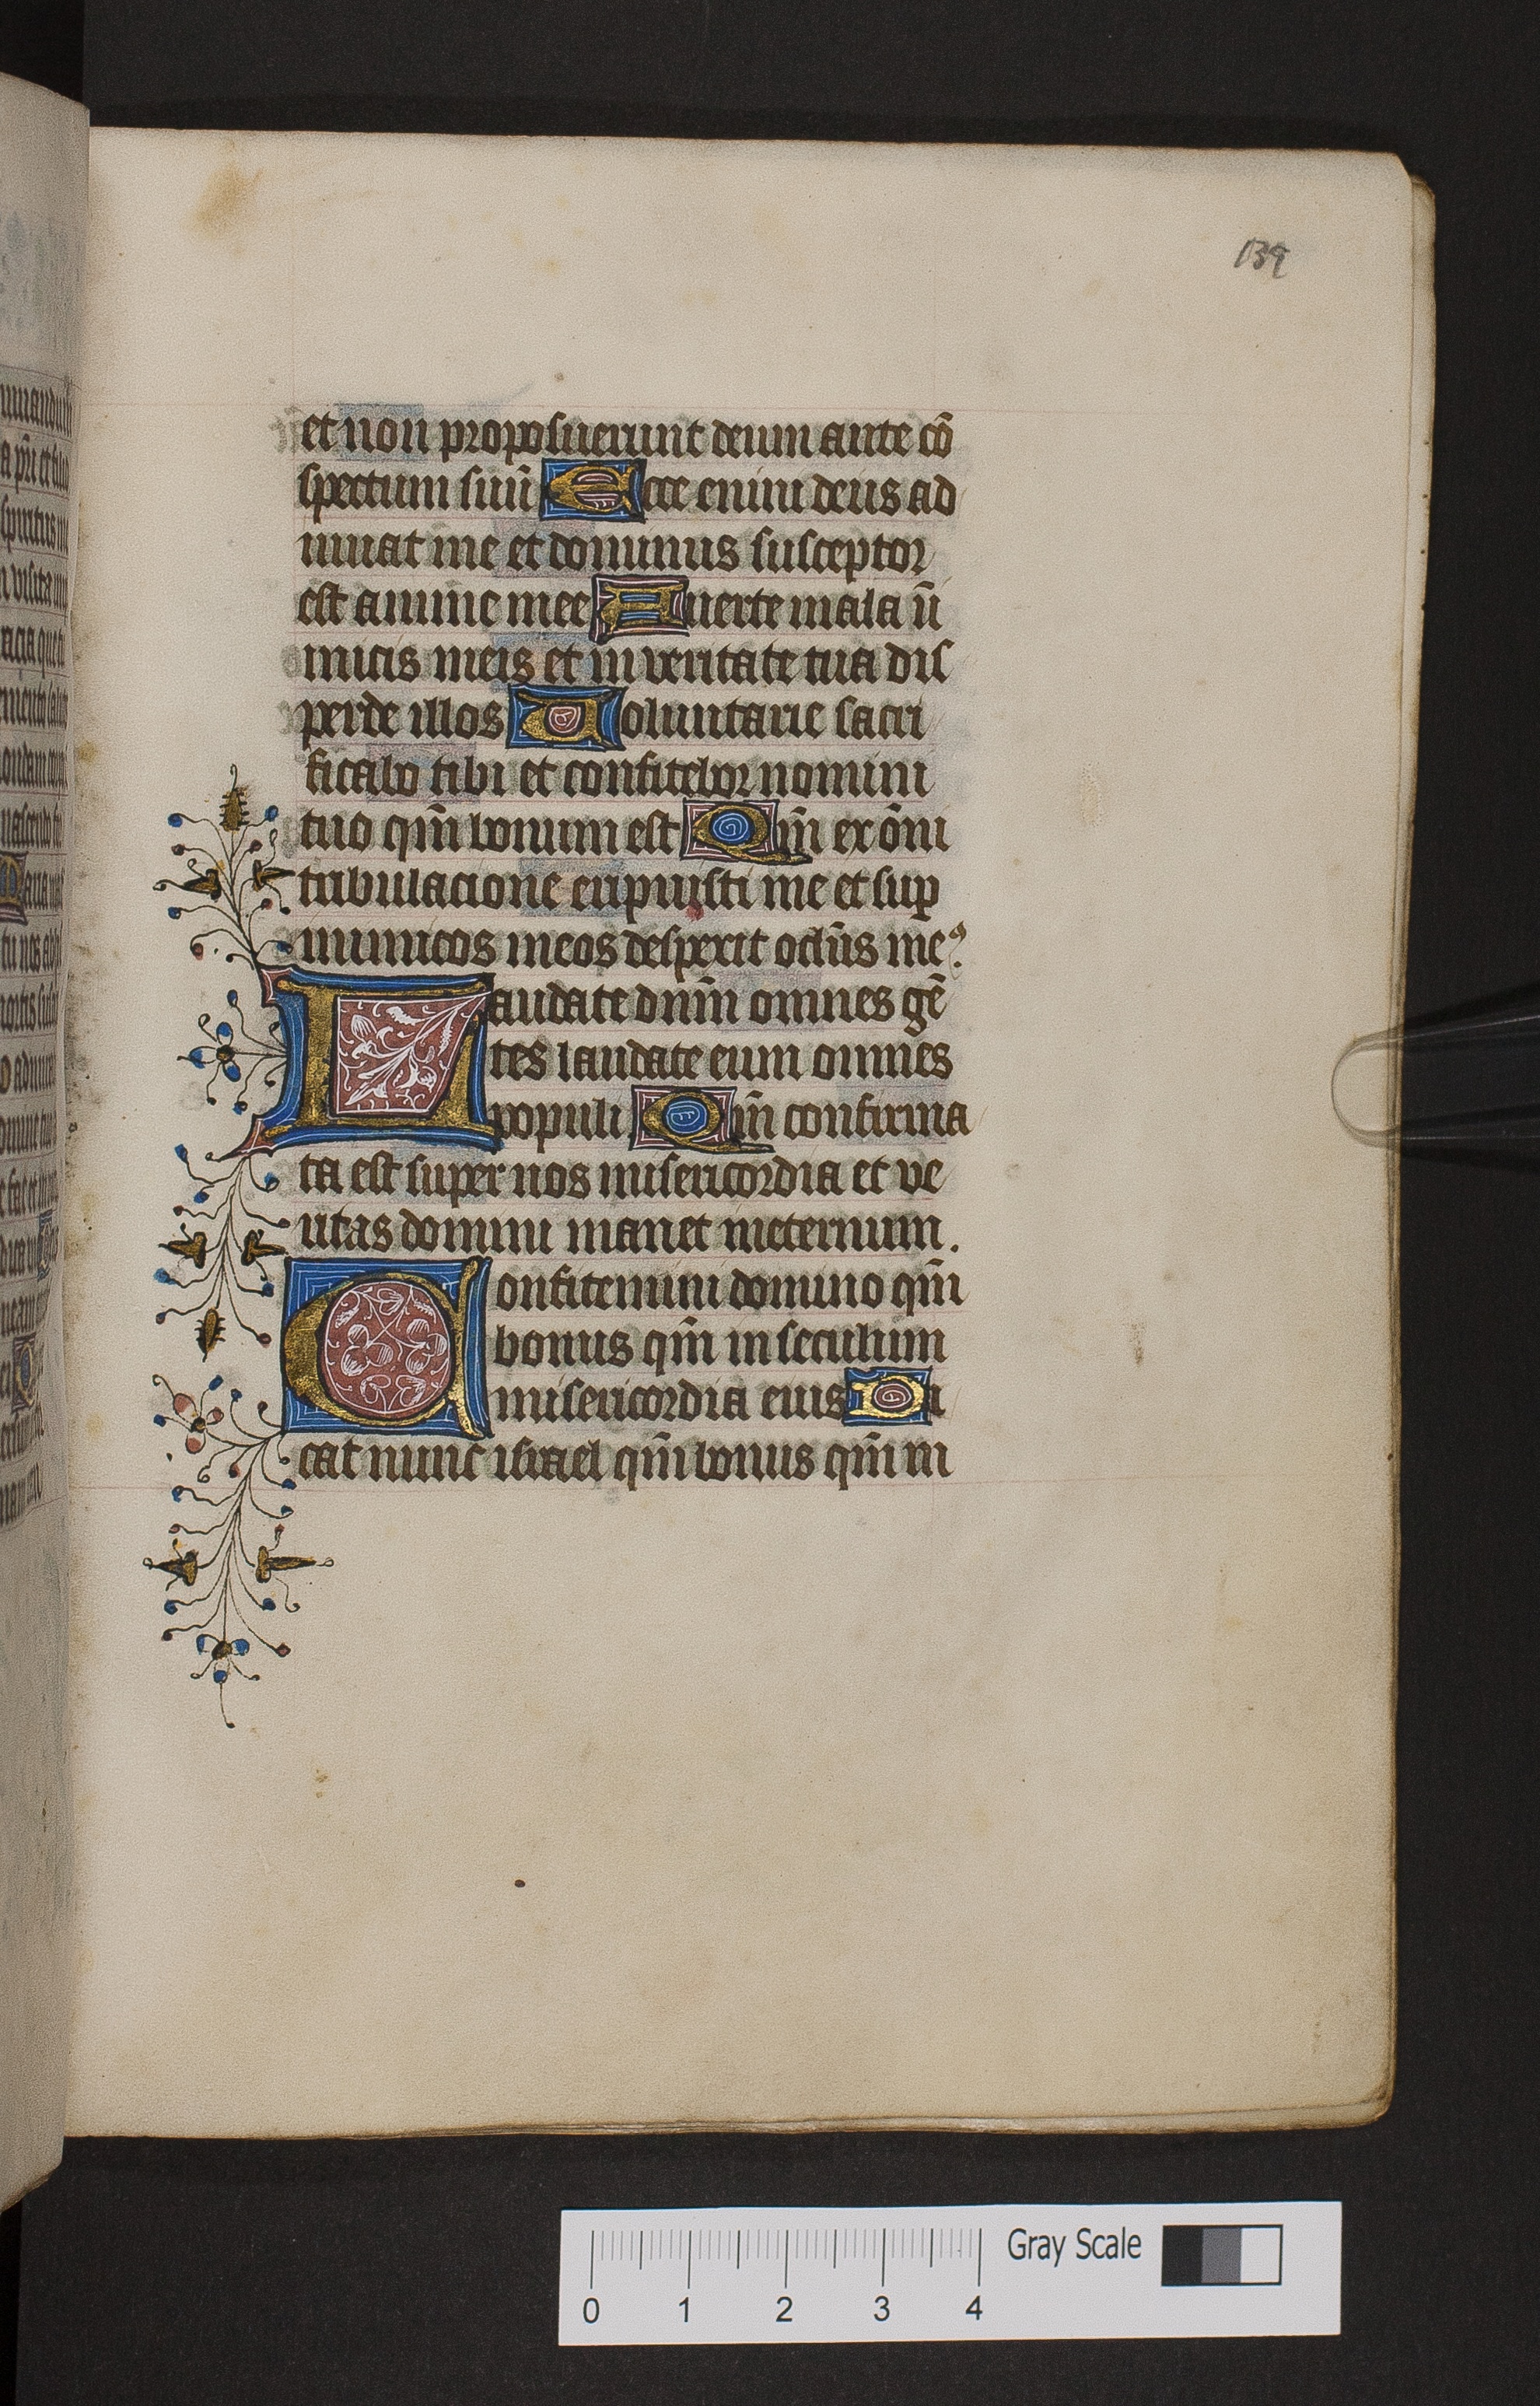 139
et non proposuerunt deum ante cō
spectum suū Ecce enim deus ad
iuuat me et dominus susceptor
est anime mee Auerte mala ū
micis meis et in veritate tua dis
perde illos Uoluntarie sacri
ficabo tibi et confitebor nomini
tuo qm̄ bonum est Qm̄ ex om̄i
tribulacione eripuisti me et sup
inimicos meos despexit oclūs meꝰ
Laudate dnm̄ omnes gē
tes laudate eum omnes
populi Qm̄ confirma
ta est super nos misericordia et ve
ritas domini manet ineternum.
Confitemini domino qm̄
bonus qm̄ in seculum
misericordia eius Di
cat nunc israel qm̄ bonus qm̄ in
Gray Scale
0 1 2 3 4